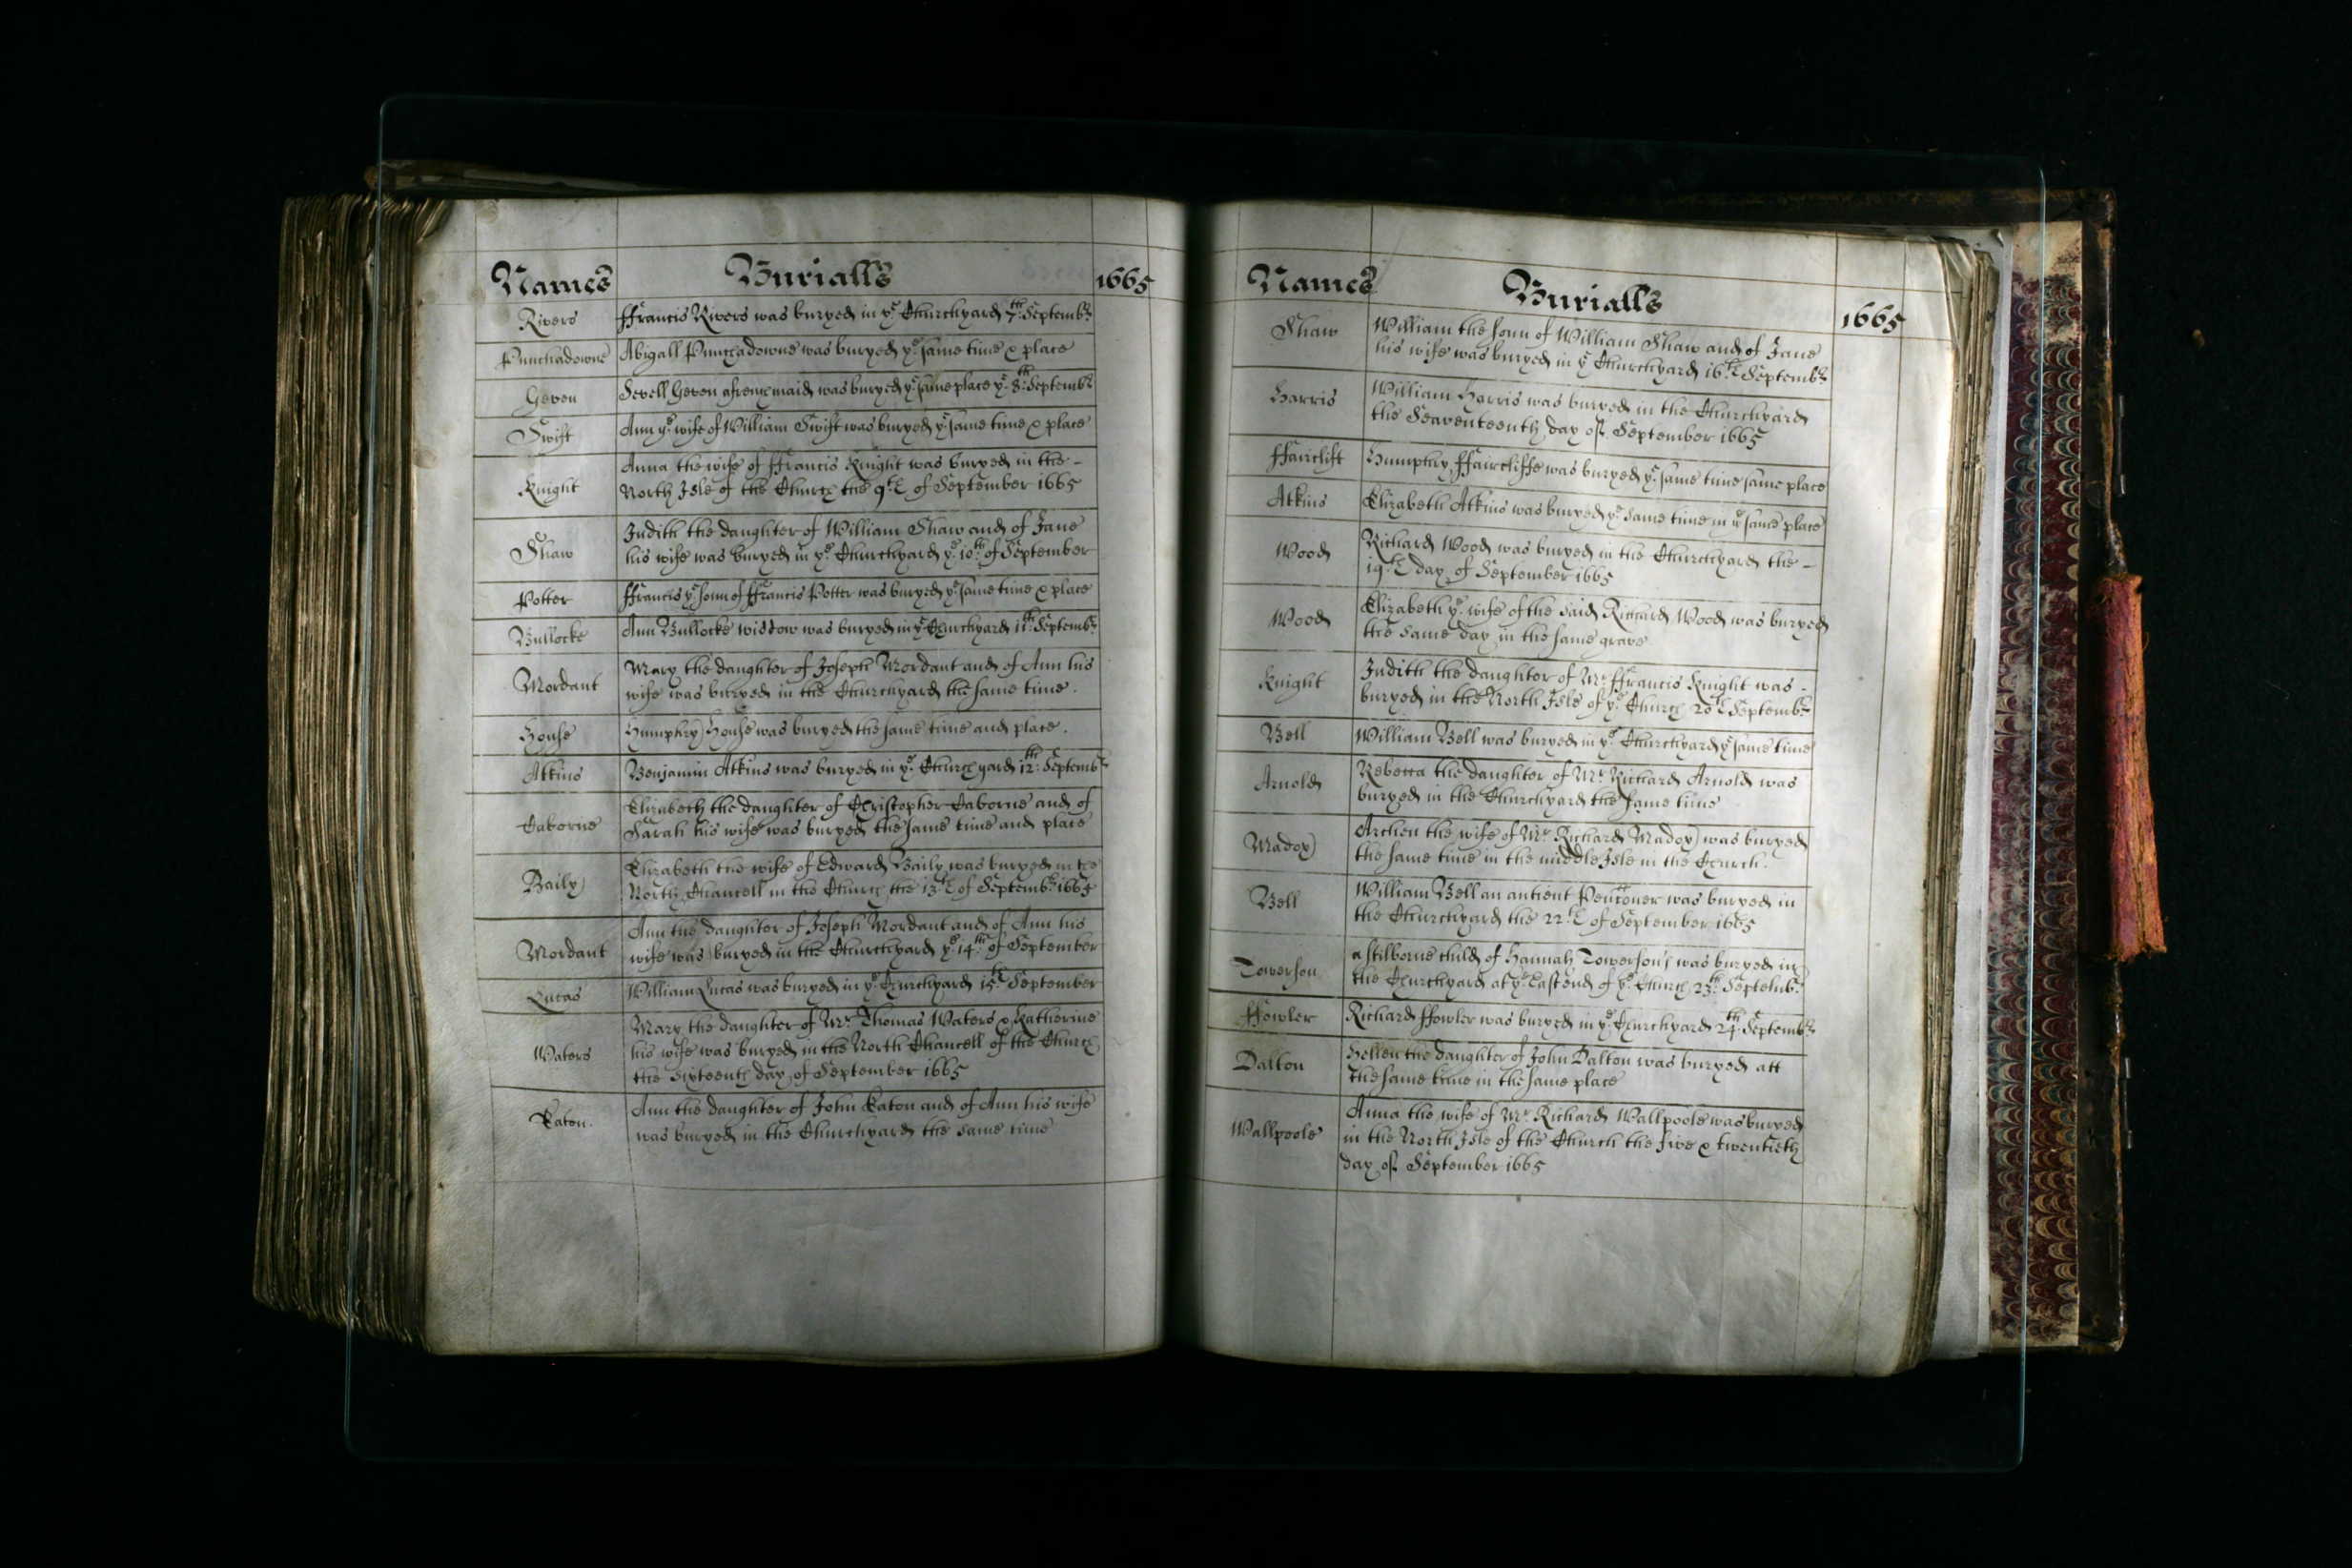 Names Burialls 1665
Rivers ffrancis Rivers was buryed in ye Churchyard 7th Septembr
Punchadowne Abigall Punchadowne was buryed ye same time & place
Geven Sevell Geven a french maid was buryed ye same place ye 8th Septembr
Swift Ann ye wife of William Swift was buryed ye same time & place
Knight Anna the wife of ffrancis Knight was buryed in the -
North Isle of the Church the 9th of September 1665
Shaw Judith the daughter of William Shaw and of Jane
his wife was buryed in ye Churchyard ye 10th of September
Potter ffrancis ye sonn of ffrancis Potter was buryed ye same time & place
Bullocke Ann Bullocke widdow was buryed in ye Churchyard 11th Septembr
Mordant Mary the daughter of Joseph Mordant and of Ann his
wife was buryed in the Churchyard the same time.
House Humphry House was buryed the same time and place.
Atkins Benjamin Atkins was buryed in ye Church yard 12th Septembr
Caborne Elizabeth the daughter of Christopher Caborne and of
Sarah his wife was buryed the same time and place
Baily Elizabeth the wife of Edward Baily was buryed in the
North Chancell in the Church the 13th of Septembr 1665
Mordant Ann the daughter of Joseph Mordant and of Ann his
wife was buryed in the Churchyard ye 14th of September
Lucas William Lucas was buryed in ye Churchyard 15th September
Waters Mary the daughter of Mr Thomas Waters & Katherine
his wife was buryed in the North Chancell of the Church
the Sixteenth day of September 1665
Eaton. Ann the daughter of John Eaton and of Ann his wife
was buryed in the Churchyard the same time
Names Burialls 1665
Shaw William the sonn of William Shaw and of Jane
his wife was buryed in ye Churchyard 16th Septembr
Harris William Harris was buryed in the Churchyard
the Seaventeenth day of September 1665
ffairclift Humphry ffaircliffe was buryed ye same time same place
Atkins Elizabeth Atkins was buryed ye same time in ye same place
Wood Richard Wood was buryed in the Churchyard the -
19th day of September 1665
Wood Elizabeth ye wife of the said Richard Wood was buryed
the same day in the same grave
Knight Judith the daughter of Mr ffrancis Knight was -
buryed in the North Isle of ye Church 20th Septembr
Bell William Bell was buryed in ye Churchyard ye same time
Arnold Rebecca the daughter of Mr Richard Arnold was
buryed in the Churchyard the same time
Madox Archen the wife of Mr Richard Madox was buryed
the same time in the middle Isle in the Church.
Bell William Bell an antient Pentioner was buryed in
the Churchyard the 22th of September 1665
Towerson a stilborne child of Hannah Towersons was buryed in
the Churchyard at ye East end of ye Church 23th Septembr
ffowler Richard ffowler was buryed in ye Churchyard 24th Septembr
Dalton Hellen the daughter of John Dalton was buryed att
the same time in the same place
Wallpoole Anna the wife of Mr Richard Wallpoole was buryed
in the North Isle of the Church the five & twentieth
day of September 1665